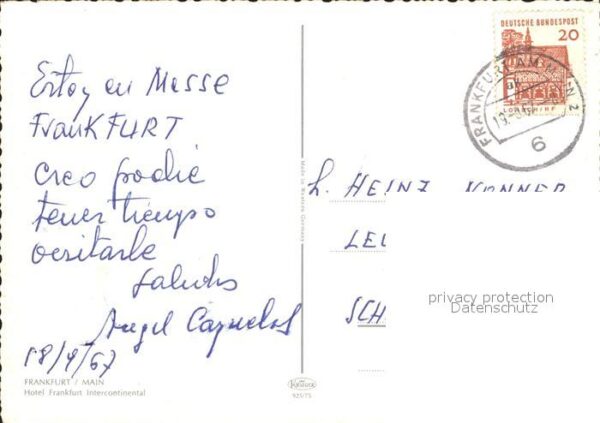 Estoy en Messe
FRANKFURT
creo podie
tener tiempo
visitarle
saludos
Angel
18/9/67
FRANKFURT / MAIN
Hotel Frankfurt Intercontinental
Made in Western Germany
KRÜGER
925/75
DEUTSCHE BUNDESPOST
20
LORSCH/HE
FRANKFURT AM MAIN 2
6
h. HEINZ KONNER
LE
SCH
privacy protection
Datenschutz